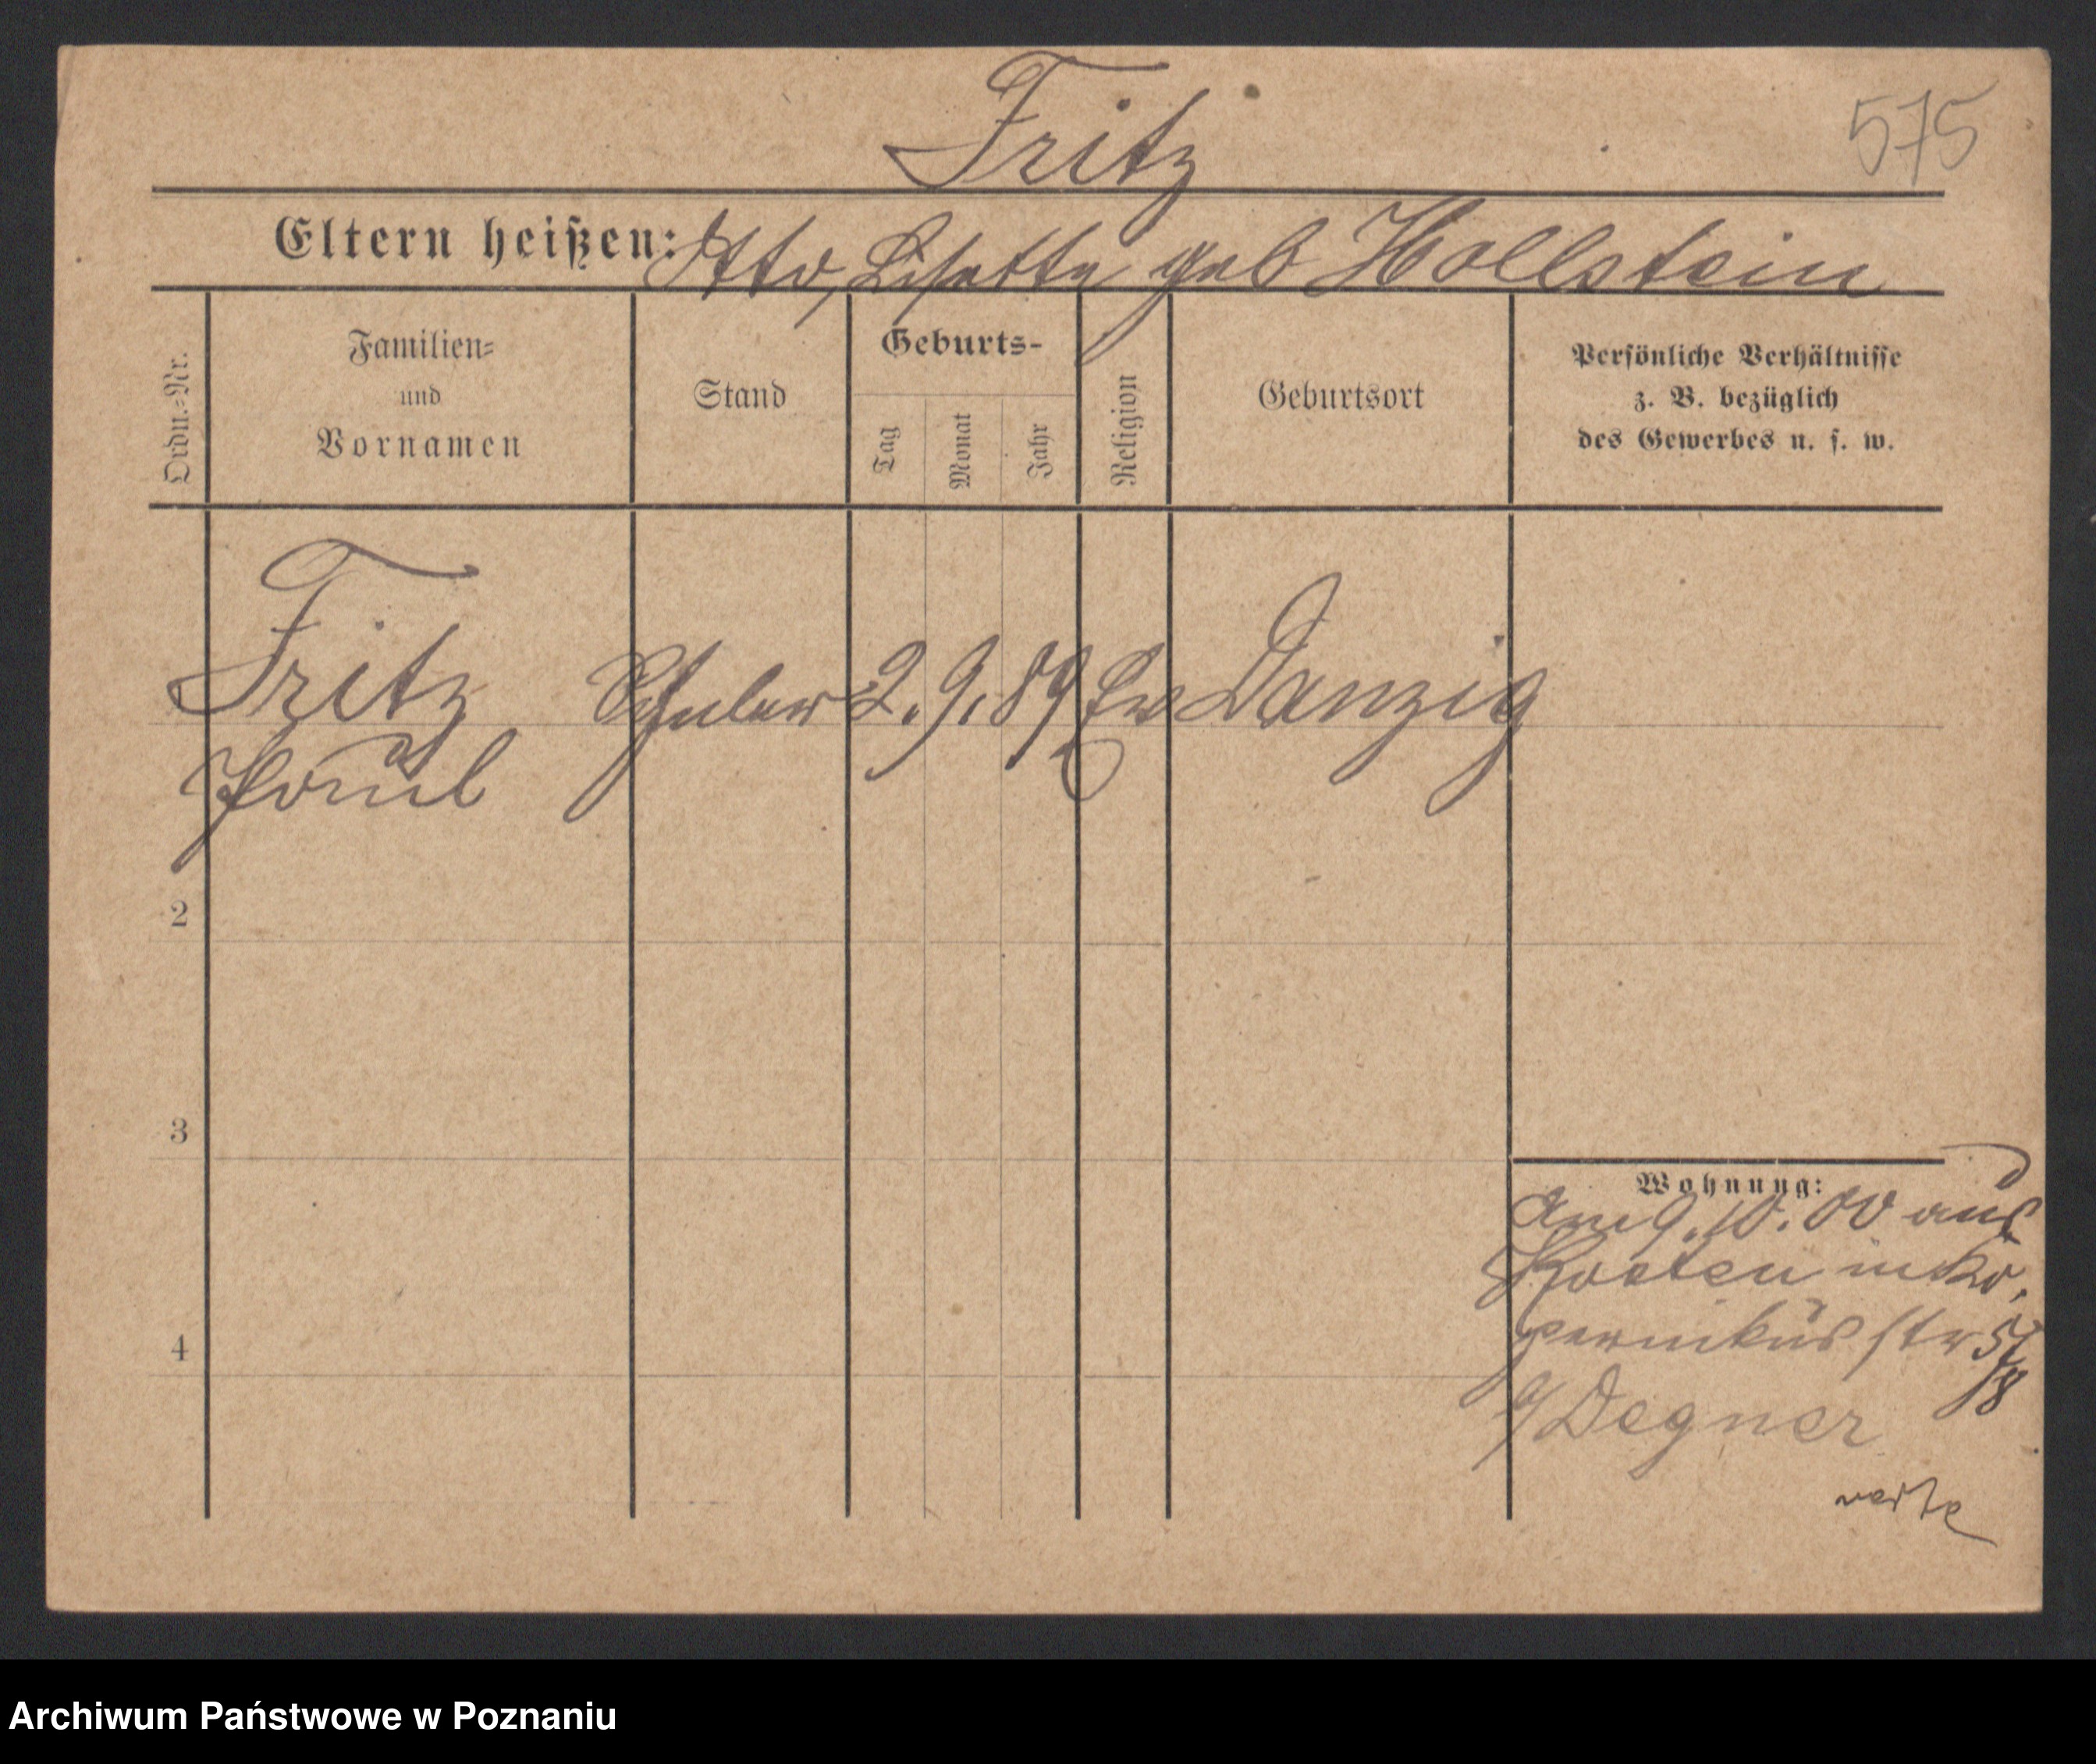 Fritz
575
Eltern heißen: Otto, Lisette geb Hollstein
Ordn.=Nr.
Familien=
und
Vornamen
Stand
Geburts-
Tag
Monat
Jahr
Religion
Geburtsort
Persönliche Verhältnisse
z. B. bezüglich
des Gewerbes u. s. w.
Fritz Schuler 2. 9. 89 Ev Danzig
Paul
2
3
4
Wohnung:
Am 9. 10. 00 aus
Kosten in Ko,
pernikus str 5/
/8
b/Degner
Archiwum Państwowe w Poznaniu